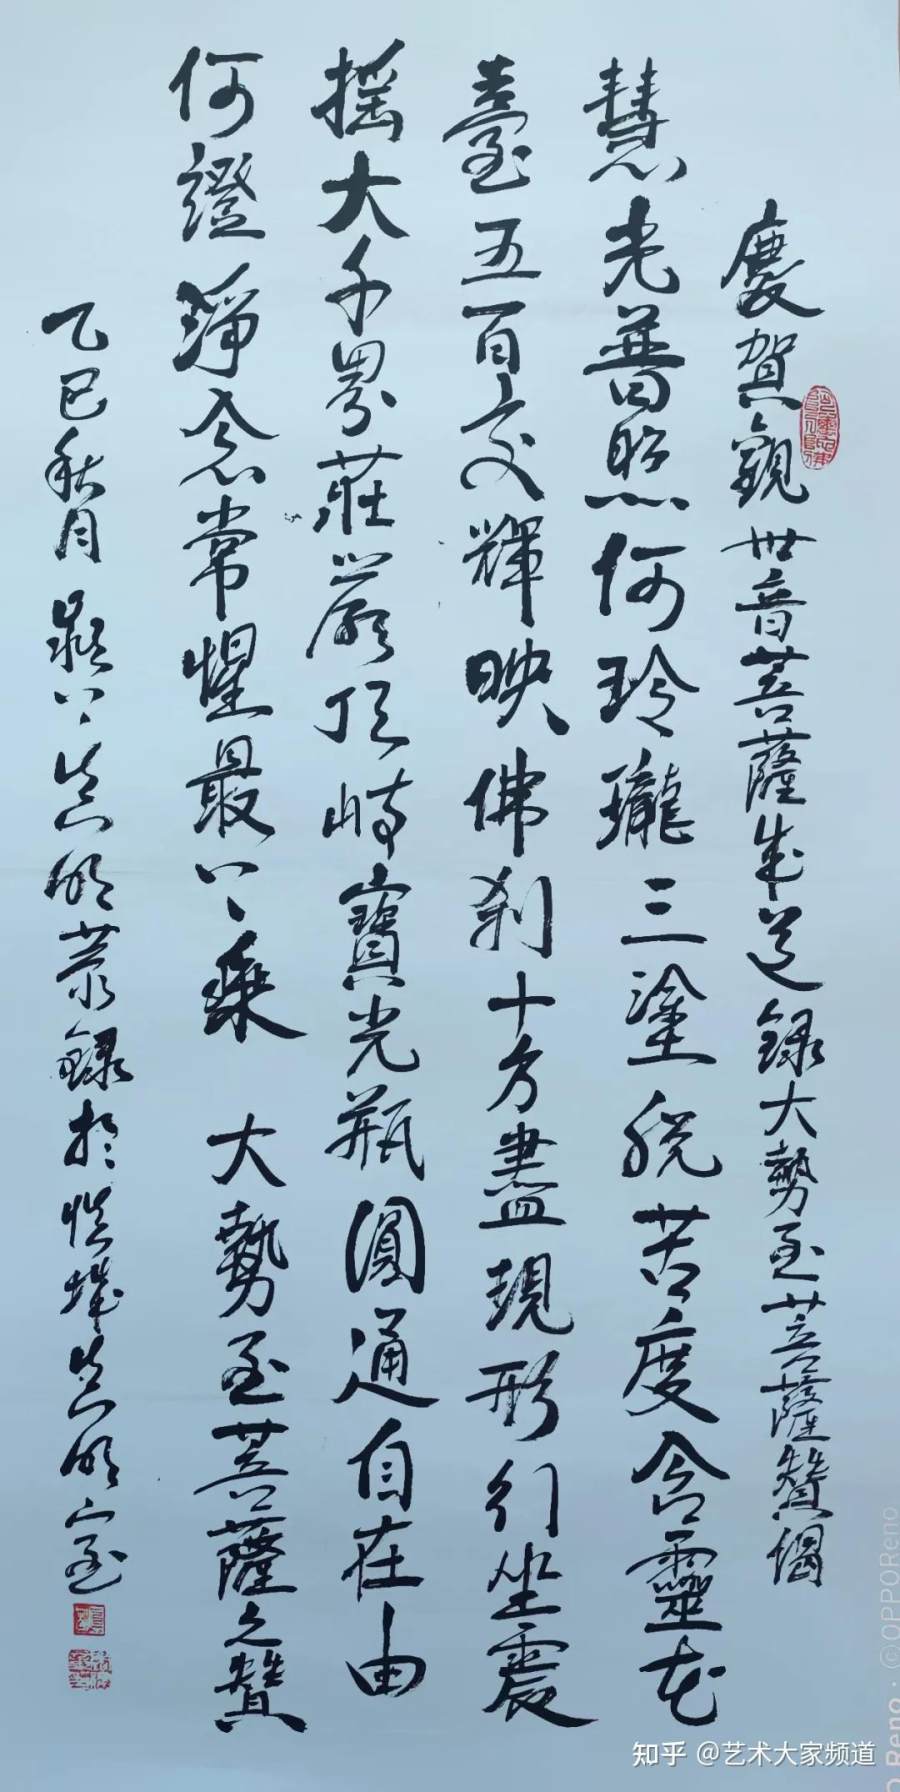 慶賀觀世音菩薩成道錄大勢至菩薩贊偈
慧光普照何玲瓏三塗脫苦度含靈花
臺五百交輝映佛刹十方盡現形行坐震
搖大千界莊嚴頂峙寶光瓶圓通自在由
何證淨念常惺最上乘 大勢至菩薩之贊
乙巳秋月 錄於 室
知乎 @艺术大家频道
©OPPOReno